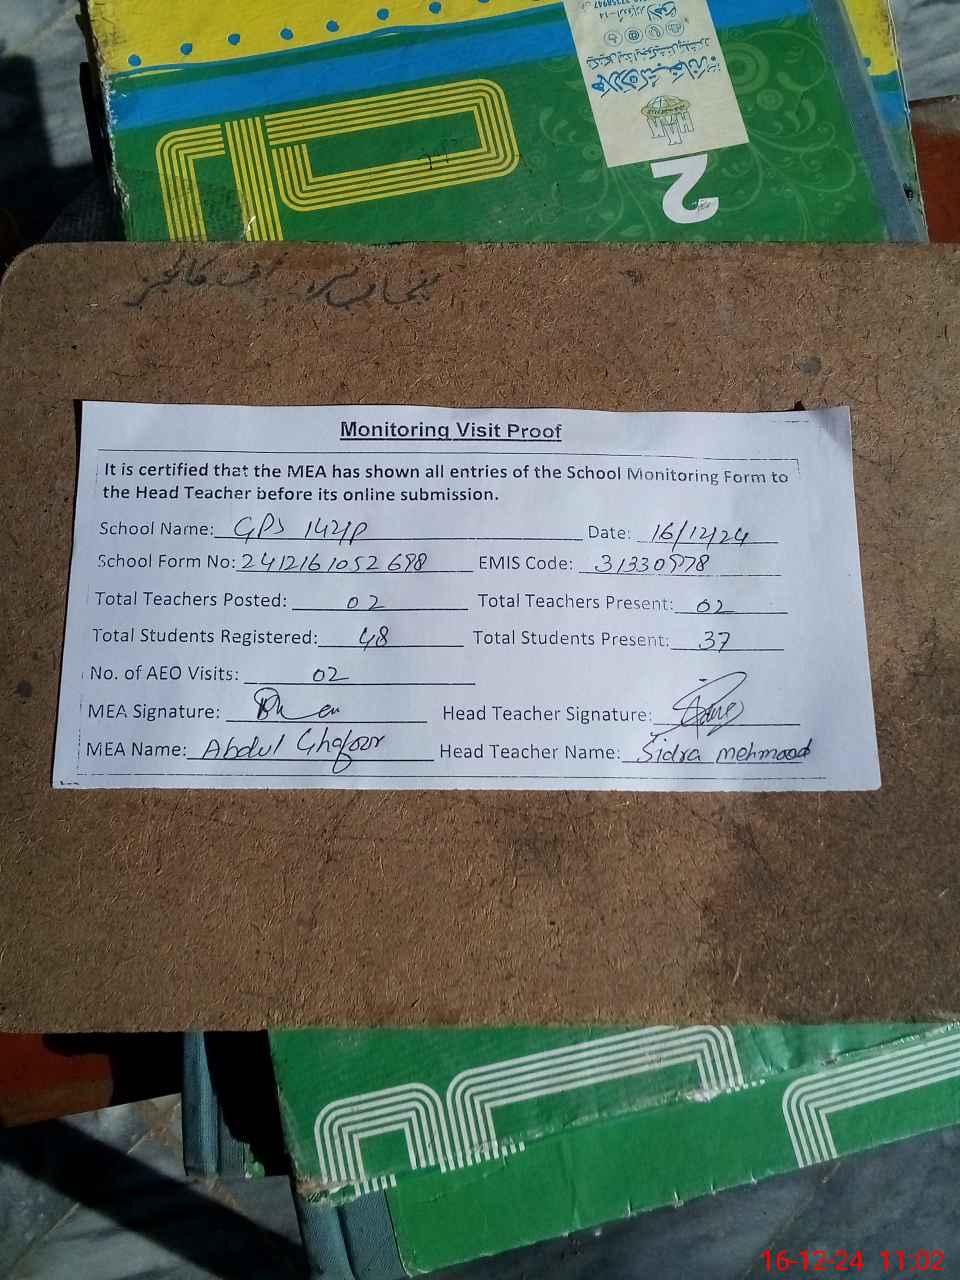 2
Monitoring Visit Proof
It is certified that the MEA has shown all entries of the School Monitoring Form to
the Head Teacher before its online submission.
School Name: GPS 142/P Date: 16/12/24
School Form No: 2412161052698 EMIS Code: 31330978
Total Teachers Posted: 02 Total Teachers Present: 02
Total Students Registered: 48 Total Students Present: 37
No. of AEO Visits: 02
MEA Signature: Head Teacher Signature:
MEA Name: Abdul Ghafoor Head Teacher Name: Sidra mehmood
16-12-24 11:02